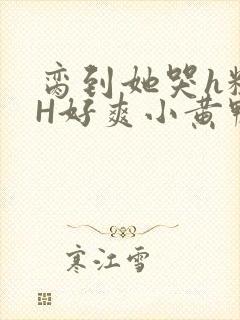 弯到她哭h
H好爽小黄
寒江雪